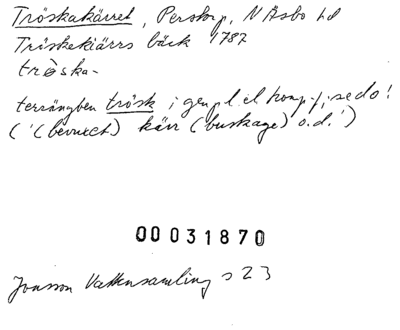 Tröskakärret, Perstorp, N Åsbo hd
Tröskekiärrs bäck 1787
tròska-
terrängben trösk i gen pl. el komp.f., se do!
('(bevuxet) kärr (buskage) o.d.')
00031870
Jonsson Vattensamling s 23